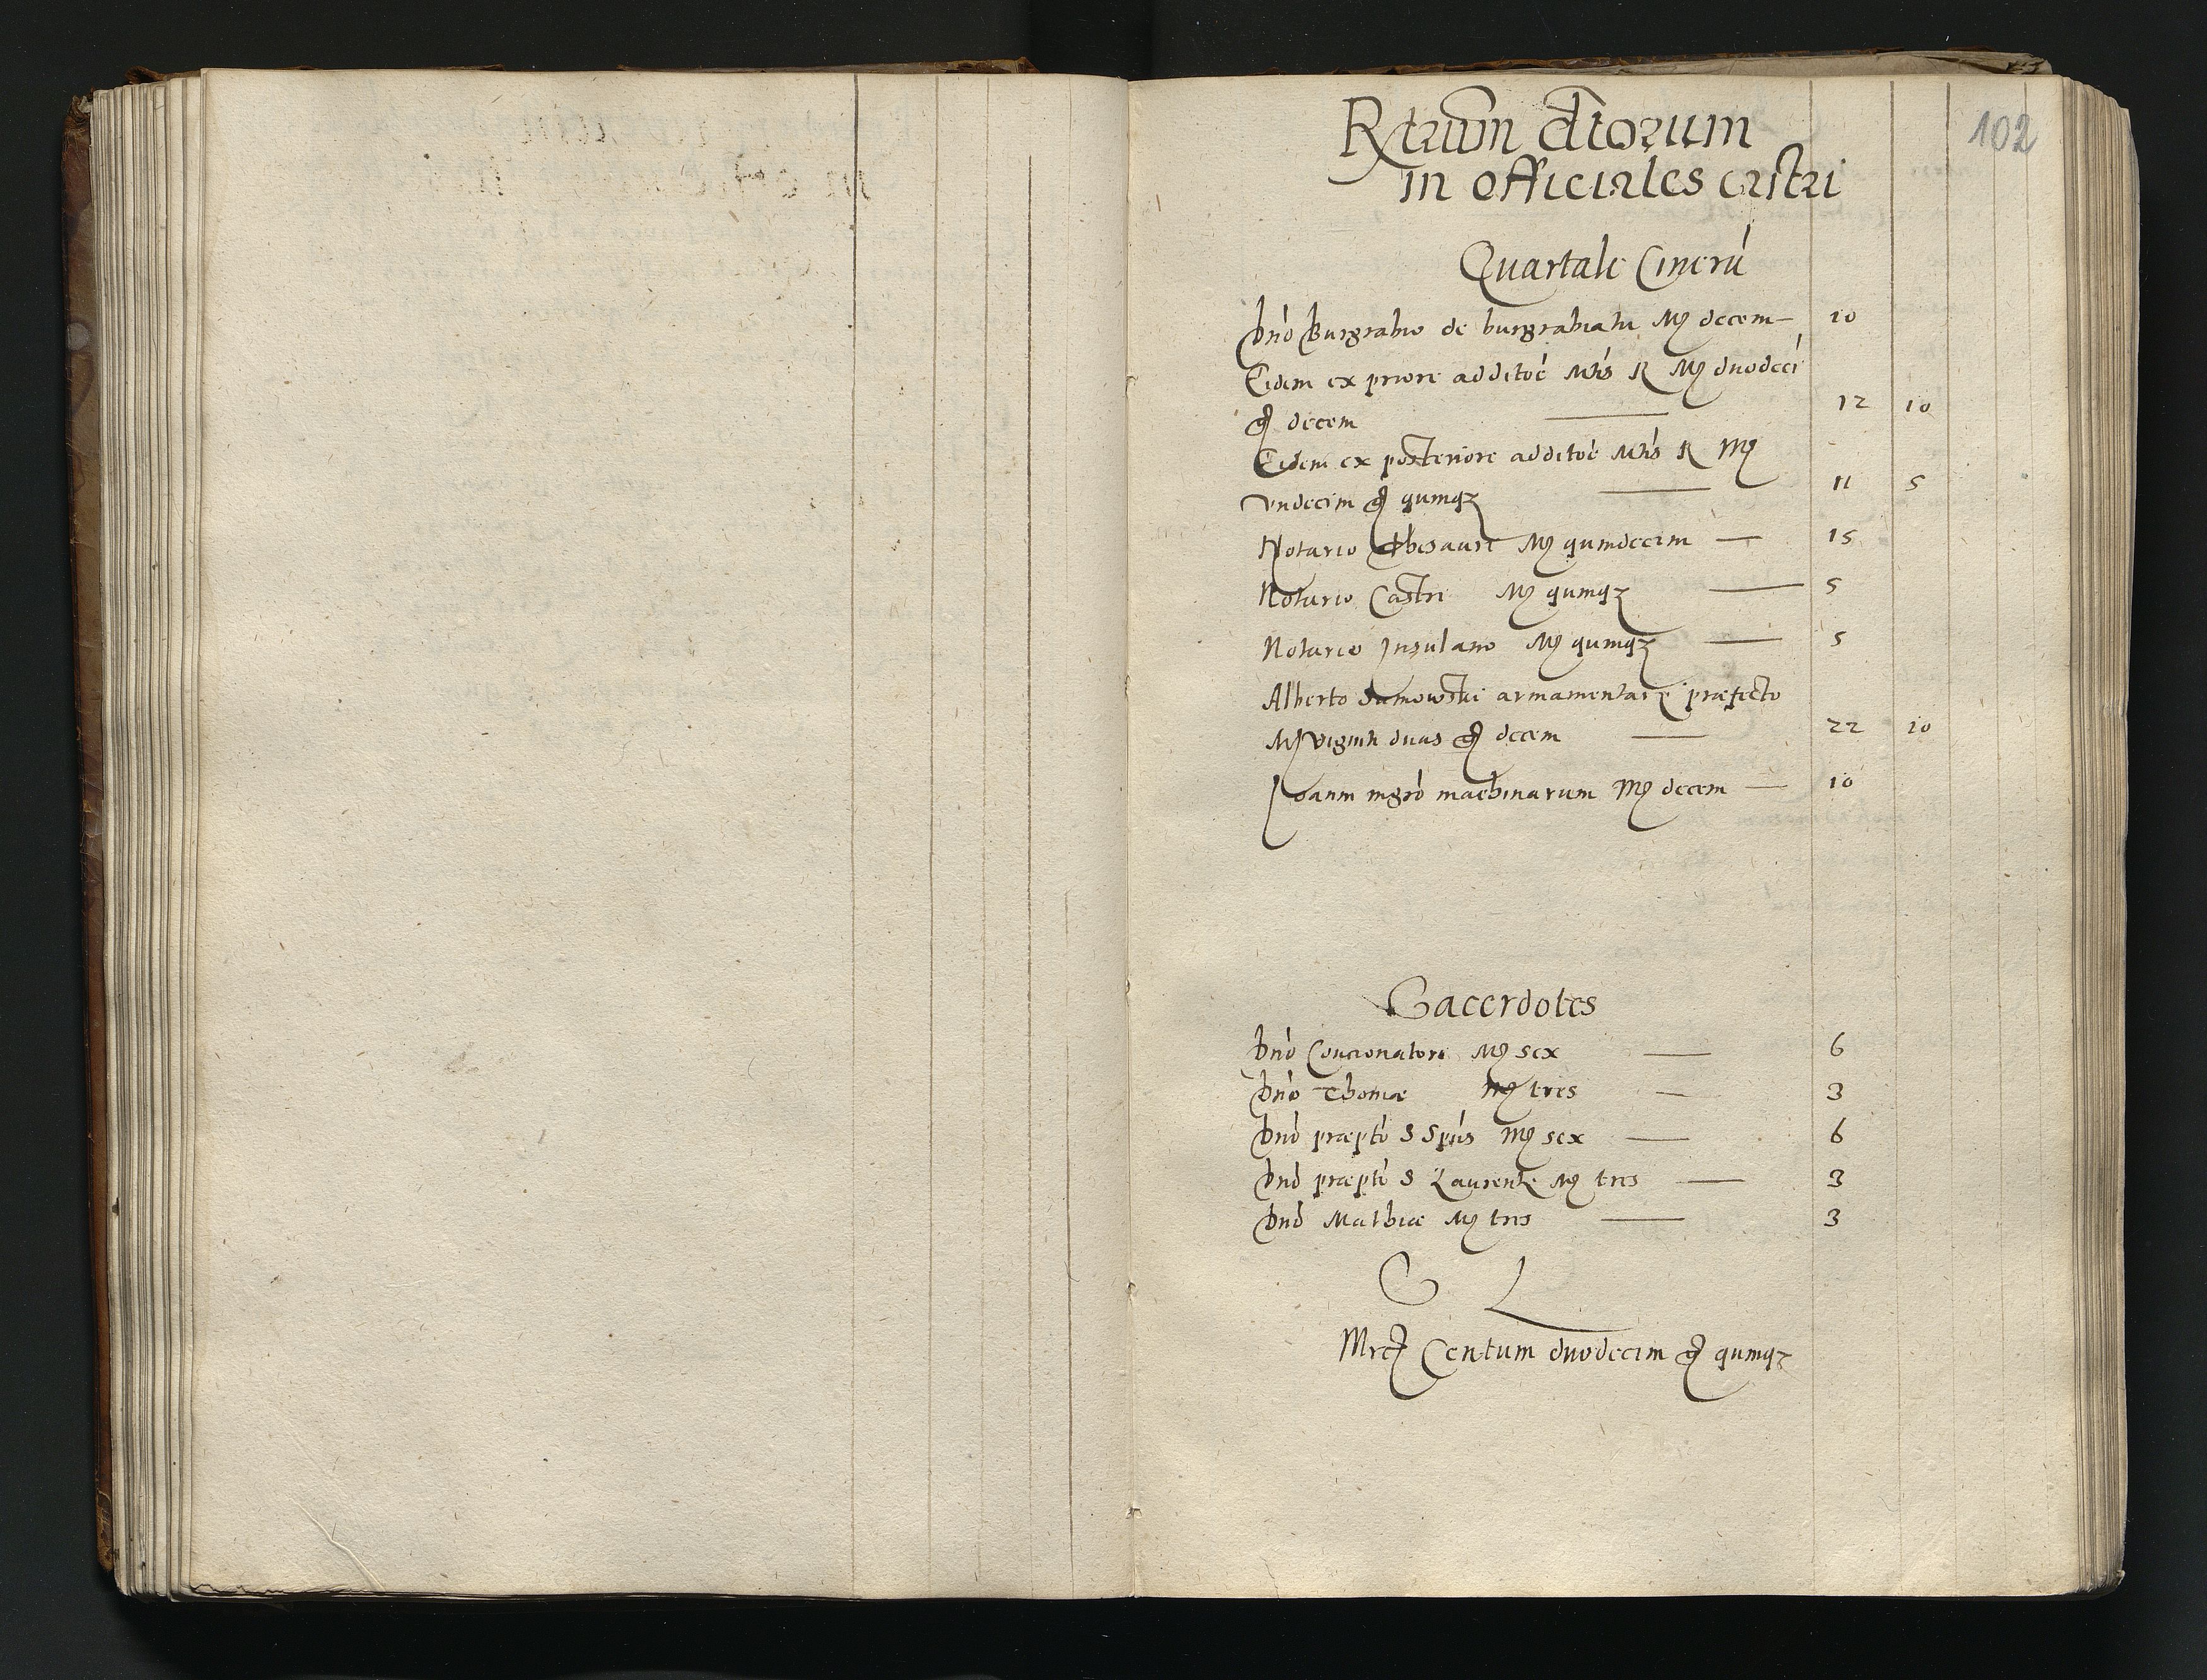 102
Rtrum dtorum
in officiales castri
Quartale Cinerũ
Dnõ Burgrabio de burgrabiatu Mrc decem — 10
Eidem ex priore additõe Mtis R Mrc duodeci
gr decem — 12 10
Eidem ex posteriore additõe Mtis R Mrc
vndecim gr qumqz — 11 5
Notario Thesauri Mrc qumdecim — 15
Notario Castri Mrc qumqz — 5
Notario Insulano Mrc qumqz — 5
Alberto armamentarÿ præfecto
Mrc viginti duas gr decem — 22 10
Joanni mgrõ machinarum Mrc decem — 10
Sacerdotes
Dnõ Concionatori Mrc sex — 6
Dnõ Thomæ Mrc tres — 3
Dnõ præptõ S Spũs Mrc sex — 6
Dnõ præptõ S Laurentÿ Mrc tres — 3
Dnõ Mathiæ Mrc tres — 3
S L
Mrc Centum duodecim gr qumqz